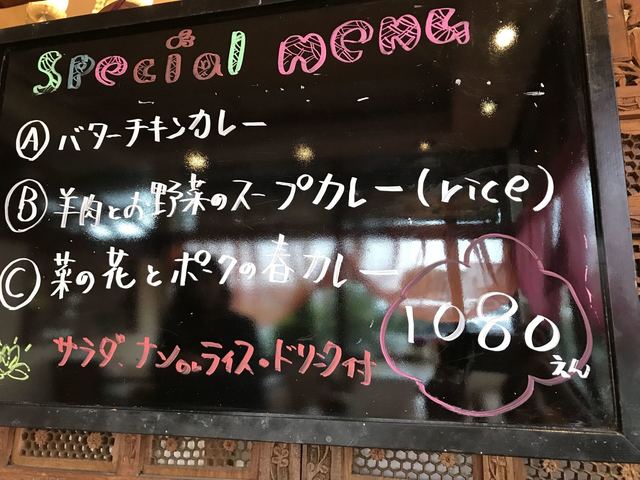 Special menu
Ⓐ バターチキンカレー
Ⓑ 羊肉とお野菜のスープカレー(rice)
Ⓒ 菜の花とポークの春カレー
1080
えん
サラダ、ナンorライス・ドリンク付